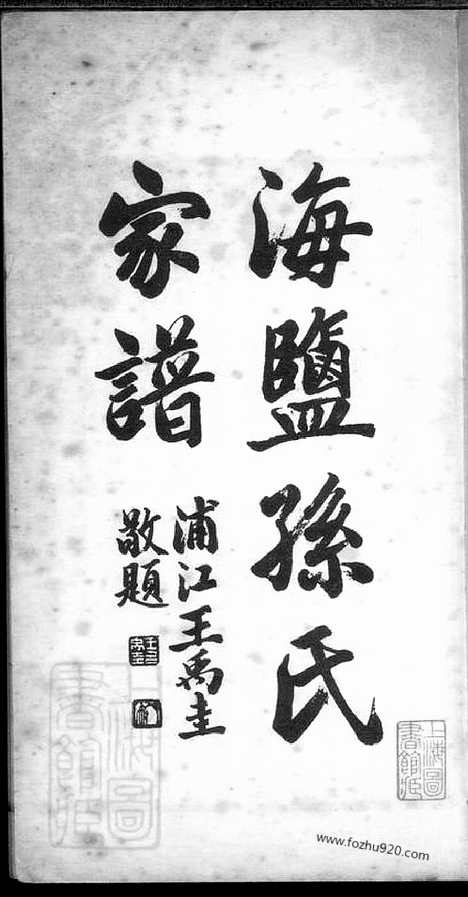 海鹽孫氏
家譜
浦江王禹圭
敬題
上海圖
書館藏
www.fozhu920.com